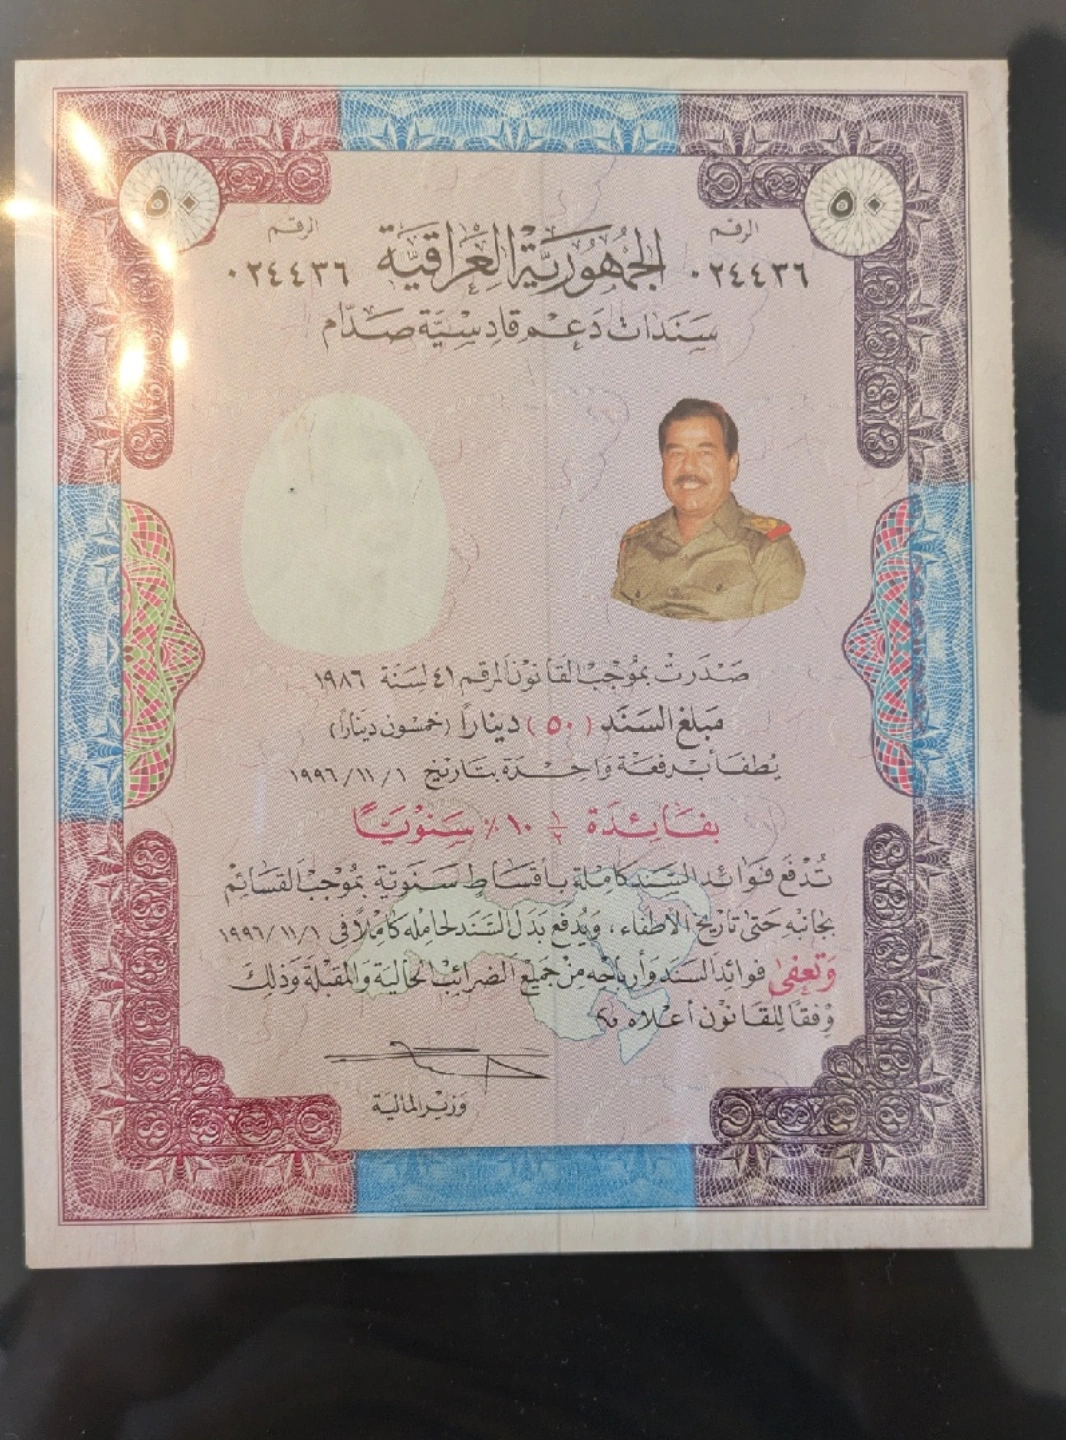 ٥٠
٥٠
الرقم
الرقم
٠٢٤٤٣٦
الجُمْهُورِيَّةُ العِرَاقِيَّة
٠٢٤٤٣٦
سَنَدَات دَعْم قَادِسِيَّة صَدَّام
صَدَرَتْ بمُوجَبْ القَانُونْ المرقم ٤١ لسَنة ١٩٨٦
مَبلغ السَنَد (٥٠) دينَاراً (خمسُون دينَاراً)
يُطفَأ بدفعَة وَاحِدَة بتَاريخ ١/١١/١٩٩٦
بفَائِدَة ١/٢ ١٠٪ سَنَويَّاً
تُدْفَع فَوَائد السَّنَد كَامِلة بأقسَاطٍ سَنَويّة بمُوجَبْ القسَائم
بجَانبهِ حَتىٰ تَاريخ الاطفَاء ، وَيُدفَع بَدَل السَّنَد لحَامِله كَامِلاً فى ١/١١/١٩٩٦
وَتعفىٰ فوائد السَند وَأربَاحِه مِنْ جَميع الضَرائبْ الحَاليَة وَالمُقبَلة وَذلِكَ
وفقَاً لِلقَانُونْ أعْلَاه
وَزيْر المَاليَّة